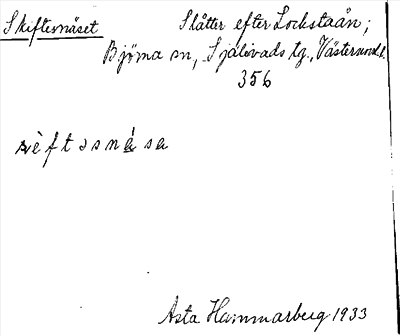 Skiftesnäset Slåtter efter Lockstaån;
Björna sn, Själevads tg., Västernorrl.
356
sèftəsnása
Asta Hammarberg 1933